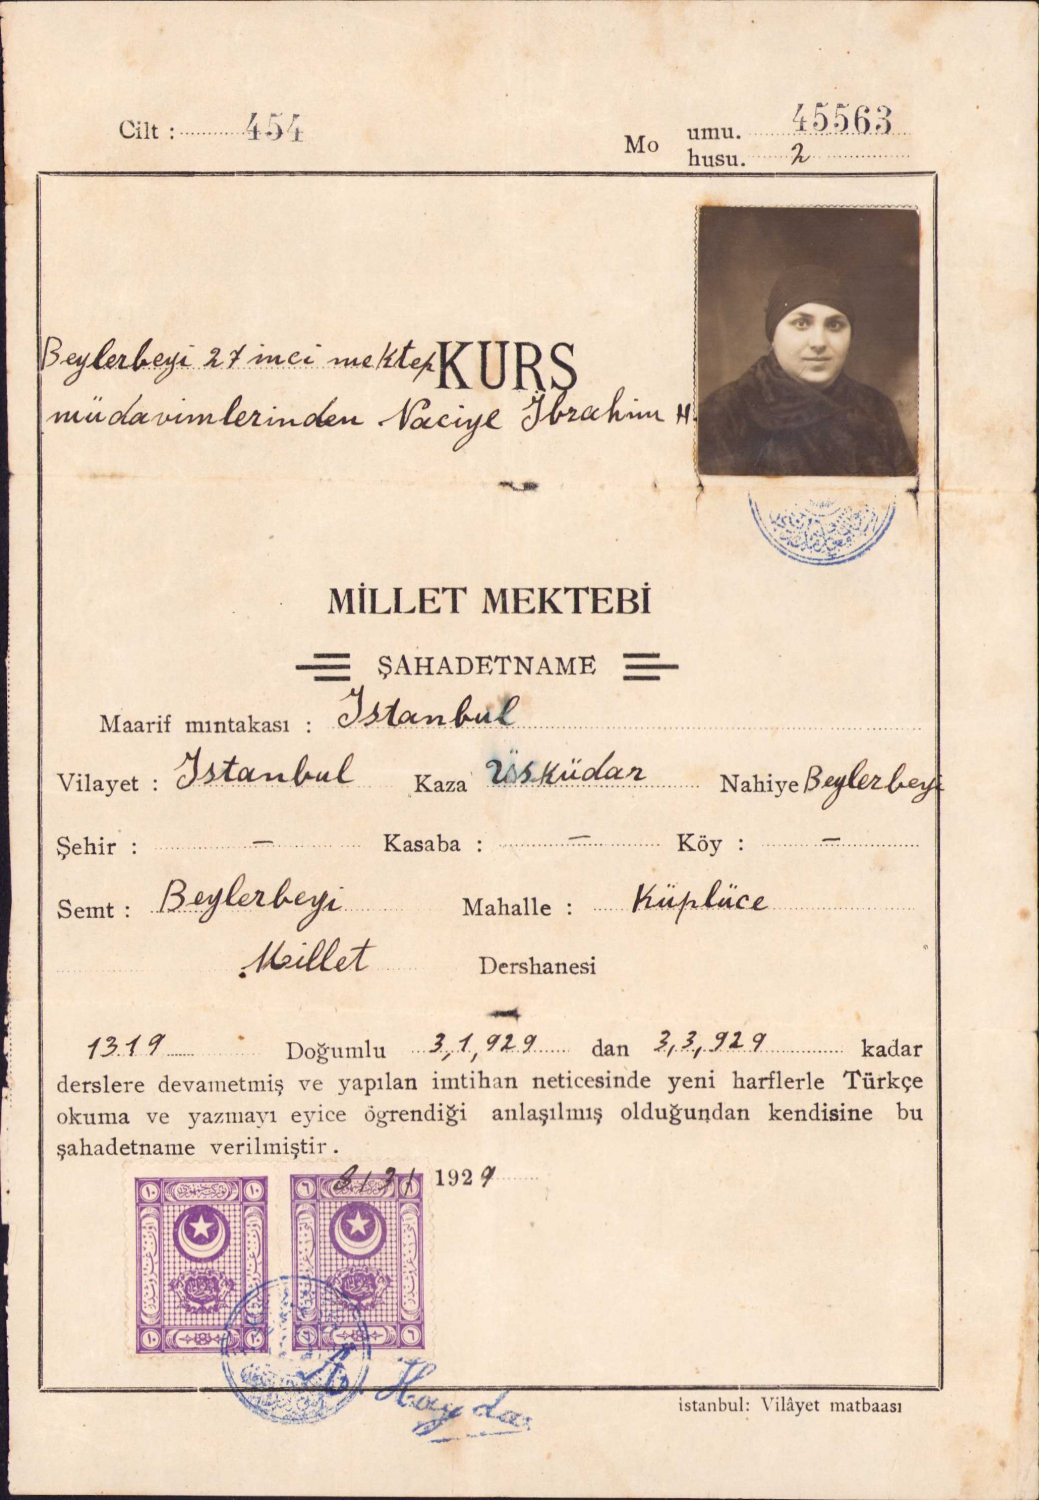 Cilt : 454
Mo umu. 45563
husu. 2
Beylerbeyi 27 inci mektep KURS
müdavimlerinden Naciye İbrahim H.
MİLLET MEKTEBİ
ŞAHADETNAME
Maarif mıntakası : Istanbul
Vilayet : Istanbul Kaza Üsküdar Nahiye Beylerbeyi
Şehir : — Kasaba : — Köy : —
Semt : Beylerbeyi Mahalle : Küplüce
Millet Dershanesi
1319 Doğumlu 3,1,929 dan 3,3,929 kadar
derslere devametmiş ve yapılan imtihan neticesinde yeni harflerle Türkçe
okuma ve yazmayı eyice ögrendiği anlaşılmış olduğundan kendisine bu
şahadetname verilmiştir.
3/3/ 1929
A. Haydar
istanbul: Vilâyet matbaası